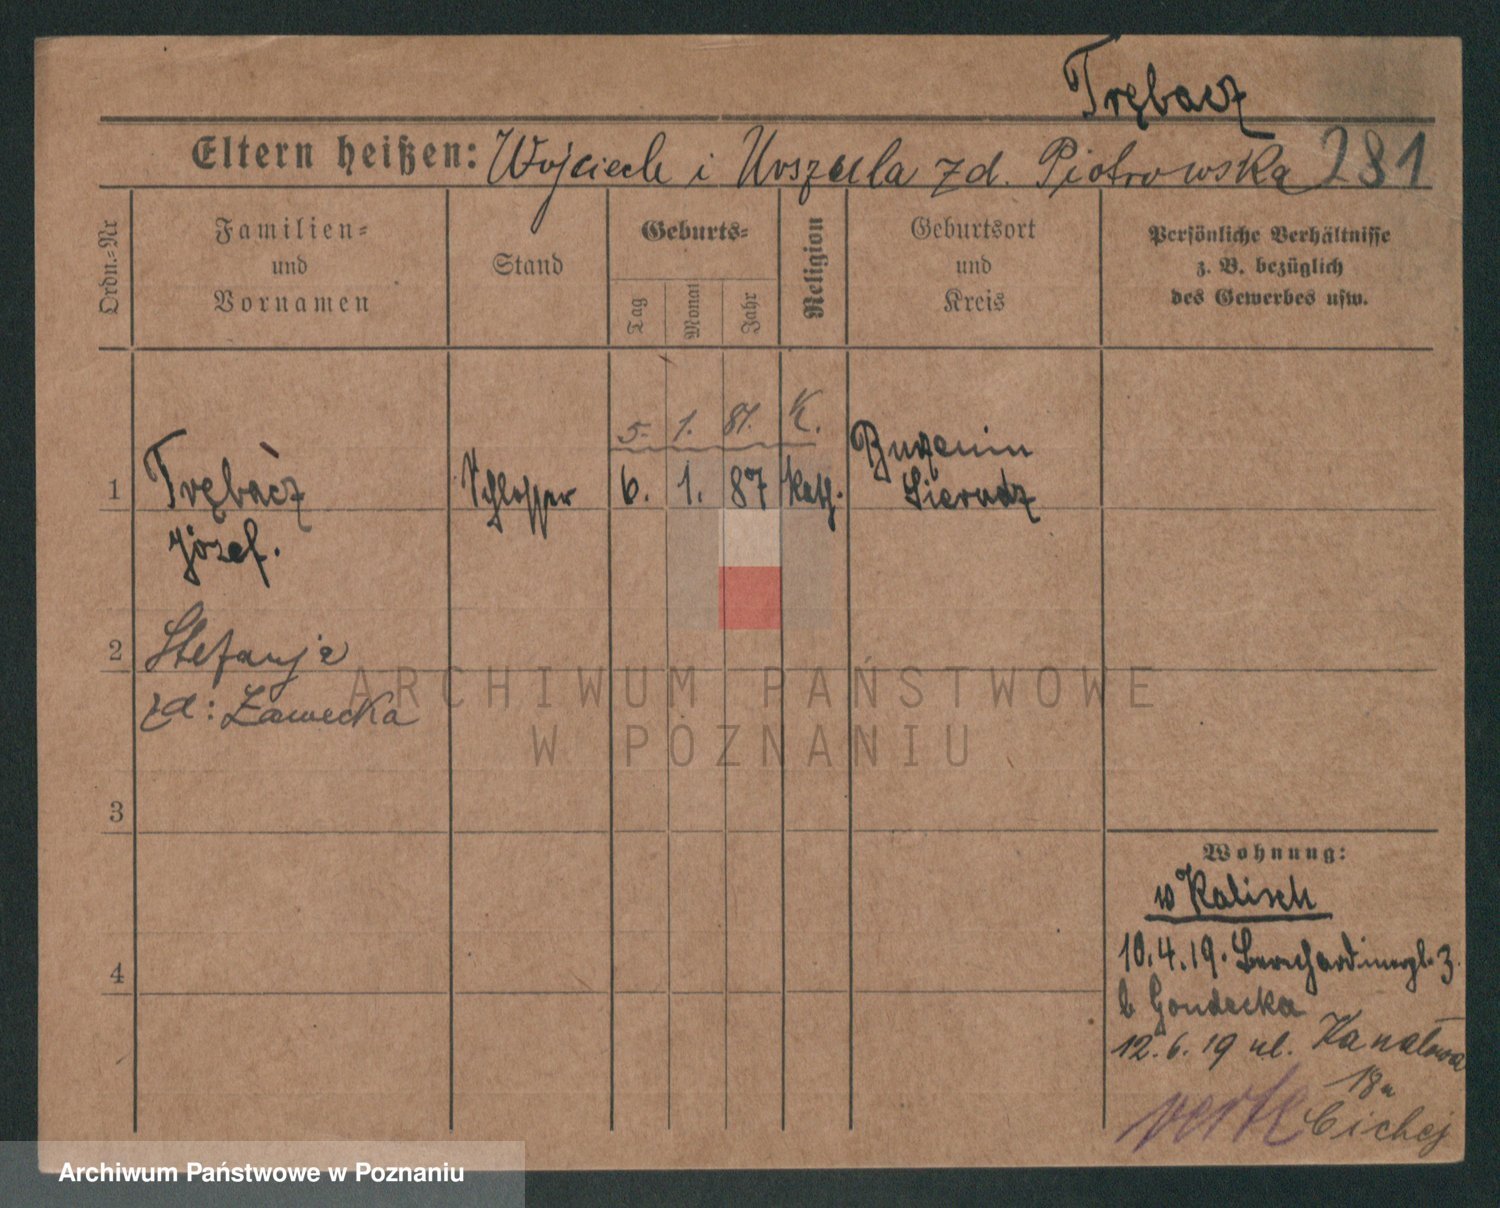 Trębacz
Eltern heißen: Wojciech i Urszula zd. Piotrowska 281
Ordn.-Nr
Familien-
und
Vornamen
Stand
Geburts-
Tag
Monat
Jahr
Religion
Geburtsort
und
Kreis
Persönliche Verhältnisse
z. B. bezüglich
des Gewerbes usw.
5. 1. 87. K.
1 Trębacz Schlosser 6. 1. 87 kath. Burzenin
Sieradz
Józef.
2 Stefanja
zd: Zawecka
ARCHIWUM PAŃSTWOWE
W POZNANIU
3
Wohnung:
w Kalisch
10.4.19. 3.
4
b Gondecka
12.6.19 ul. Kanałowa
18a
verte Cichej
Archiwum Państwowe w Poznaniu